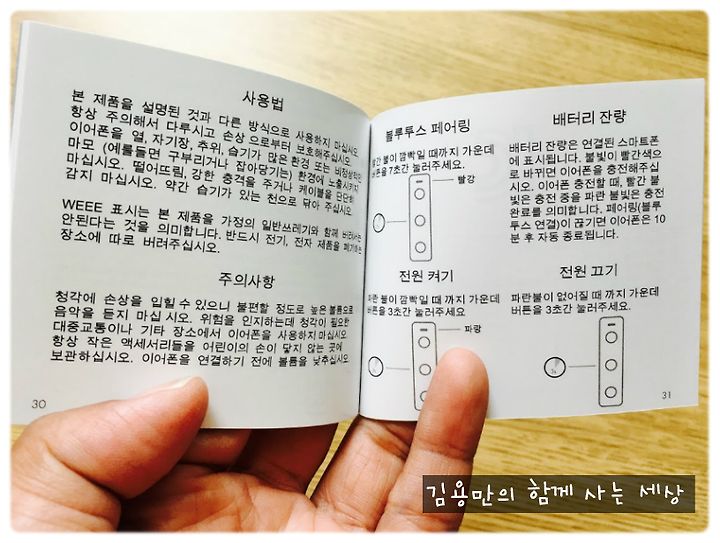 사용법
본 제품을 설명된 것과 다른 방식으로 사용하지 마십시오.
항상 주의해서 다루시고 손상으로부터 보호해주십시오.
이어폰을 열, 자기장, 추위, 습기가 많은 환경 또는 비정상적인
마모 (예를들면 구부리거나 잡아당기는) 환경에 노출시키지
마십시오. 떨어뜨림, 강한 충격을 주거나 케이블을 단단히
감지 마십시오. 약간 습기가 있는 천으로 닦아 주십시오.
WEEE 표시는 본 제품을 가정의 일반쓰레기와 함께 버려서는
안된다는 것을 의미합니다. 반드시 전기, 전자 제품을 폐기하는
장소에 따로 버려주십시오.
주의사항
청각에 손상을 입힐 수 있으니 불편할 정도로 높은 볼륨으로
음악을 듣지 마십 시오. 위험을 인지하는데 청각이 필요한
대중교통이나 기타 장소에서 이어폰을 사용하지 마십시오.
항상 작은 액세서리들을 어린이의 손이 닿지 않는 곳에
보관하십시오. 이어폰을 연결하기 전에 볼륨을 낮추십시오.
30
블루투스 페어링
빨간 불이 깜빡일 때까지 가운데
버튼을 7초간 눌러주세요.
빨강
전원 켜기
파란 불이 깜빡일 때 까지 가운데
버튼을 3초간 눌러주세요
파랑
배터리 잔량
배터리 잔량은 연결된 스마트폰
에 표시됩니다. 불빛이 빨간색으
로 바뀌면 이어폰을 충전해주십
시오. 이어폰 충전할 때, 빨간 불
빛은 충전 중을 파란 불빛은 충전
완료를 의미합니다. 페어링(블루
투스 연결)이 끊기면 이어폰은 10
분 후 자동 종료됩니다.
전원 끄기
파란불이 없어질 때 까지 가운데
버튼을 3초간 눌러주세요.
31
김용만의 함께 사는 세상